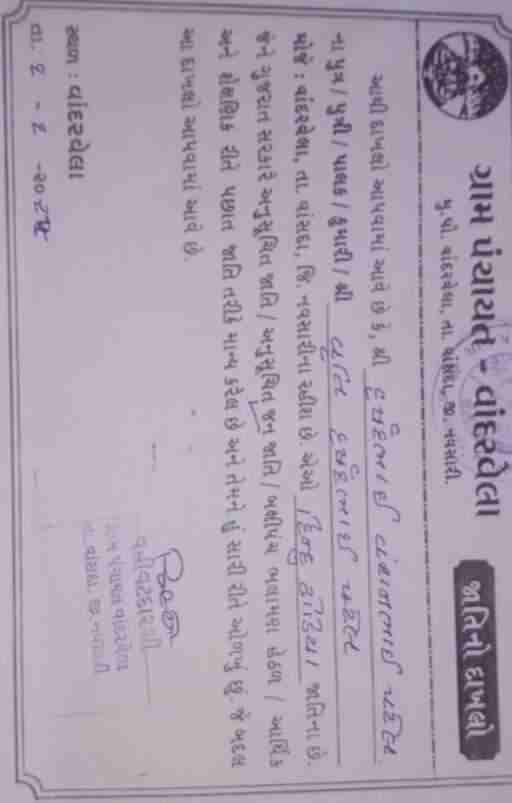 ગ્રામ પંચાયત - વાંદરવેલા
મુ.પો. વાંદરવેલા, તા. વાંસદા, જી. નવસારી.
જાતિનો દાખલો
આથી દાખલો આપવામાં આવે છે કે, શ્રી
પટેલ
ના પુત્ર / પુત્રી / પાલક / કુમારી / શ્રી
પટેલ
મોજે : વાંદરવેલા, તા. વાંસદા, જિ. નવસારીના રહીશ છે એઓ હિન્દુ ધોડિયા જાતિના છે.
જેને ગુજરાત સરકારે અનુસુચિત જાતિ / અનુસુચિત જન જાતિ / બક્ષીપંચ ભલામણ હેઠળ / આર્થિક
અને શૈક્ષણિક રીતે પછાત જાતિ તરીકે માન્ય કરેલ છે અને તેમને હું સારી રીતે ઓળખું છું. જે બદલ
આ દાખલો આપવામાં આવે છે.
સ્થળ : વાંદરવેલા
તા. ૨ - ૨ - ૨૦૨૫
ગ્રામ પંચાયત વાંદરવેલા
તા. વાંસદા, જી. નવસારી